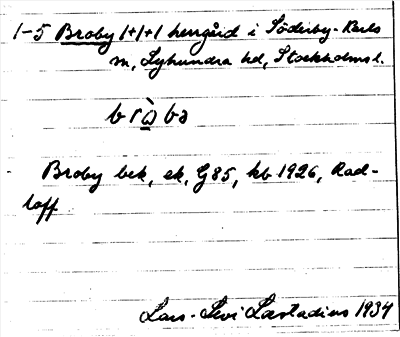 1-5 Broby 1+1+1 herrgård i Söderby-Karls
sn, Lyhundra hd, Stockholms l.
bròbə
Broby bek, ek, G85, kb 1926, Rad-
loff
Lars-Levi Læstadius 1934